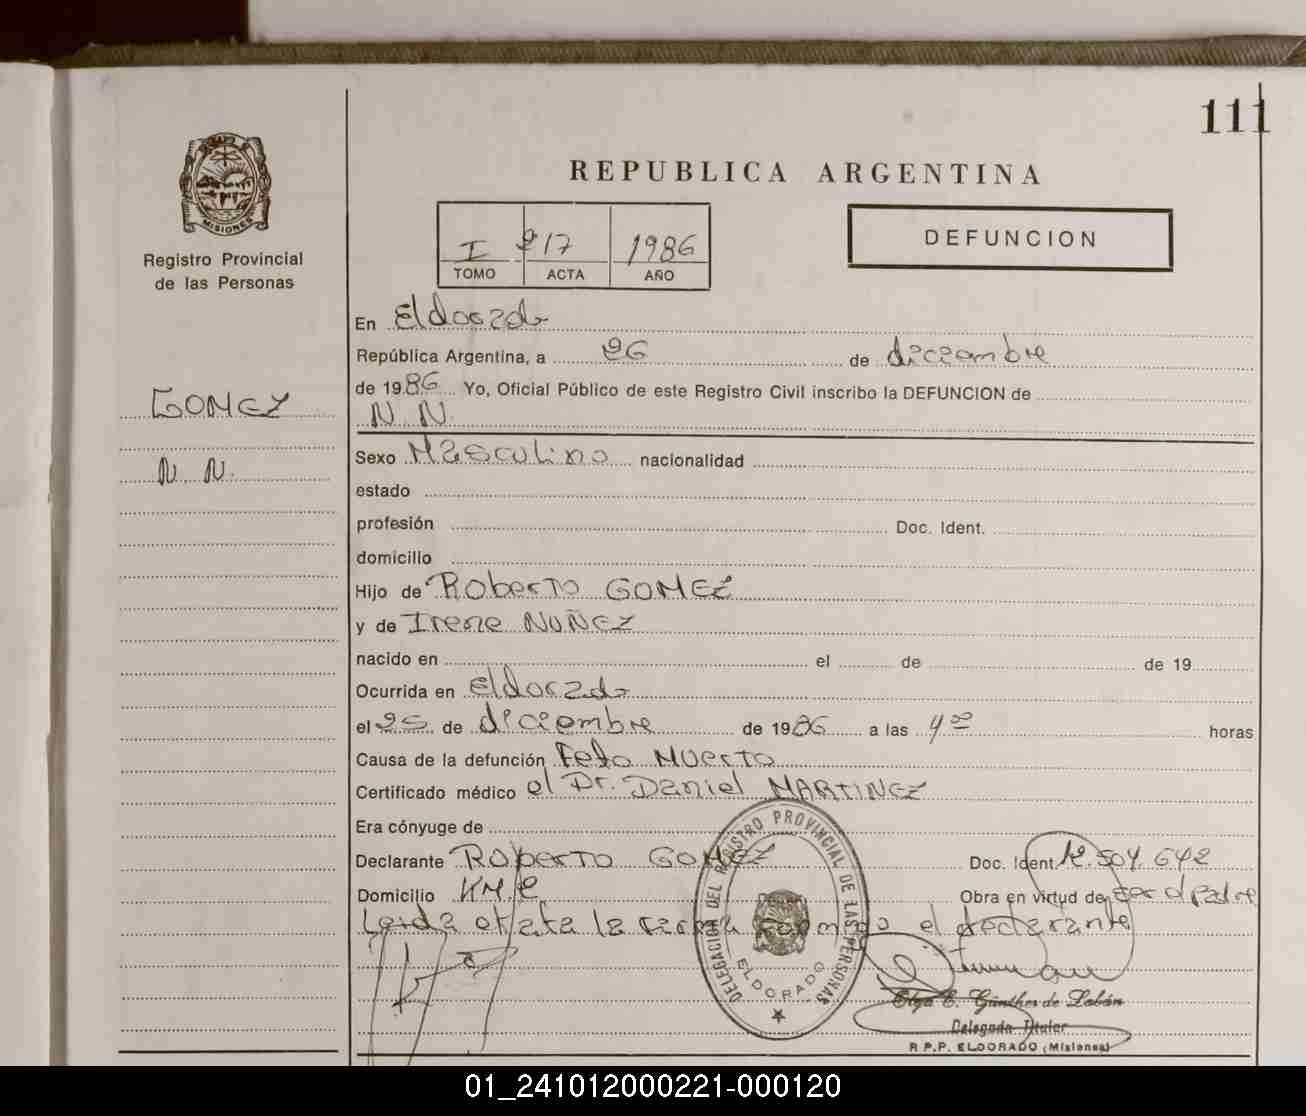 111
REPUBLICA ARGENTINA
MISIONES
Registro Provincial
de las Personas
I 217 1986
TOMO ACTA AÑO
DEFUNCION
GOMEZ
N. N.
En Eldorado
República Argentina, a 26 de diciembre
de 1986 Yo, Oficial Público de este Registro Civil inscribo la DEFUNCION de
N N
Sexo Masculino nacionalidad
estado
profesión Doc. Ident.
domicilio
Hijo de Roberto GOMEZ
y de Irene NUÑEZ
nacido en el de de 19
Ocurrida en Eldorado
el 25 de diciembre de 1986 a las 4 00 horas
Causa de la defunción Feto Muerto
Certificado médico el Dr. Daniel MARTINEZ
Era cónyuge de
Declarante Roberto GOMEZ Doc. Ident. 12.504.642
Domicilio KM. 2 Obra en virtud de ser el padre
Leida el acta la el declarante
DELEGACION DEL REGISTRO PROVINCIAL DE LAS PERSONAS
ELDORADO
Olga E. Günther de Labán
Delegada Titular
R.P.P. ELDORADO (Misiones)
01_241012000221-000120